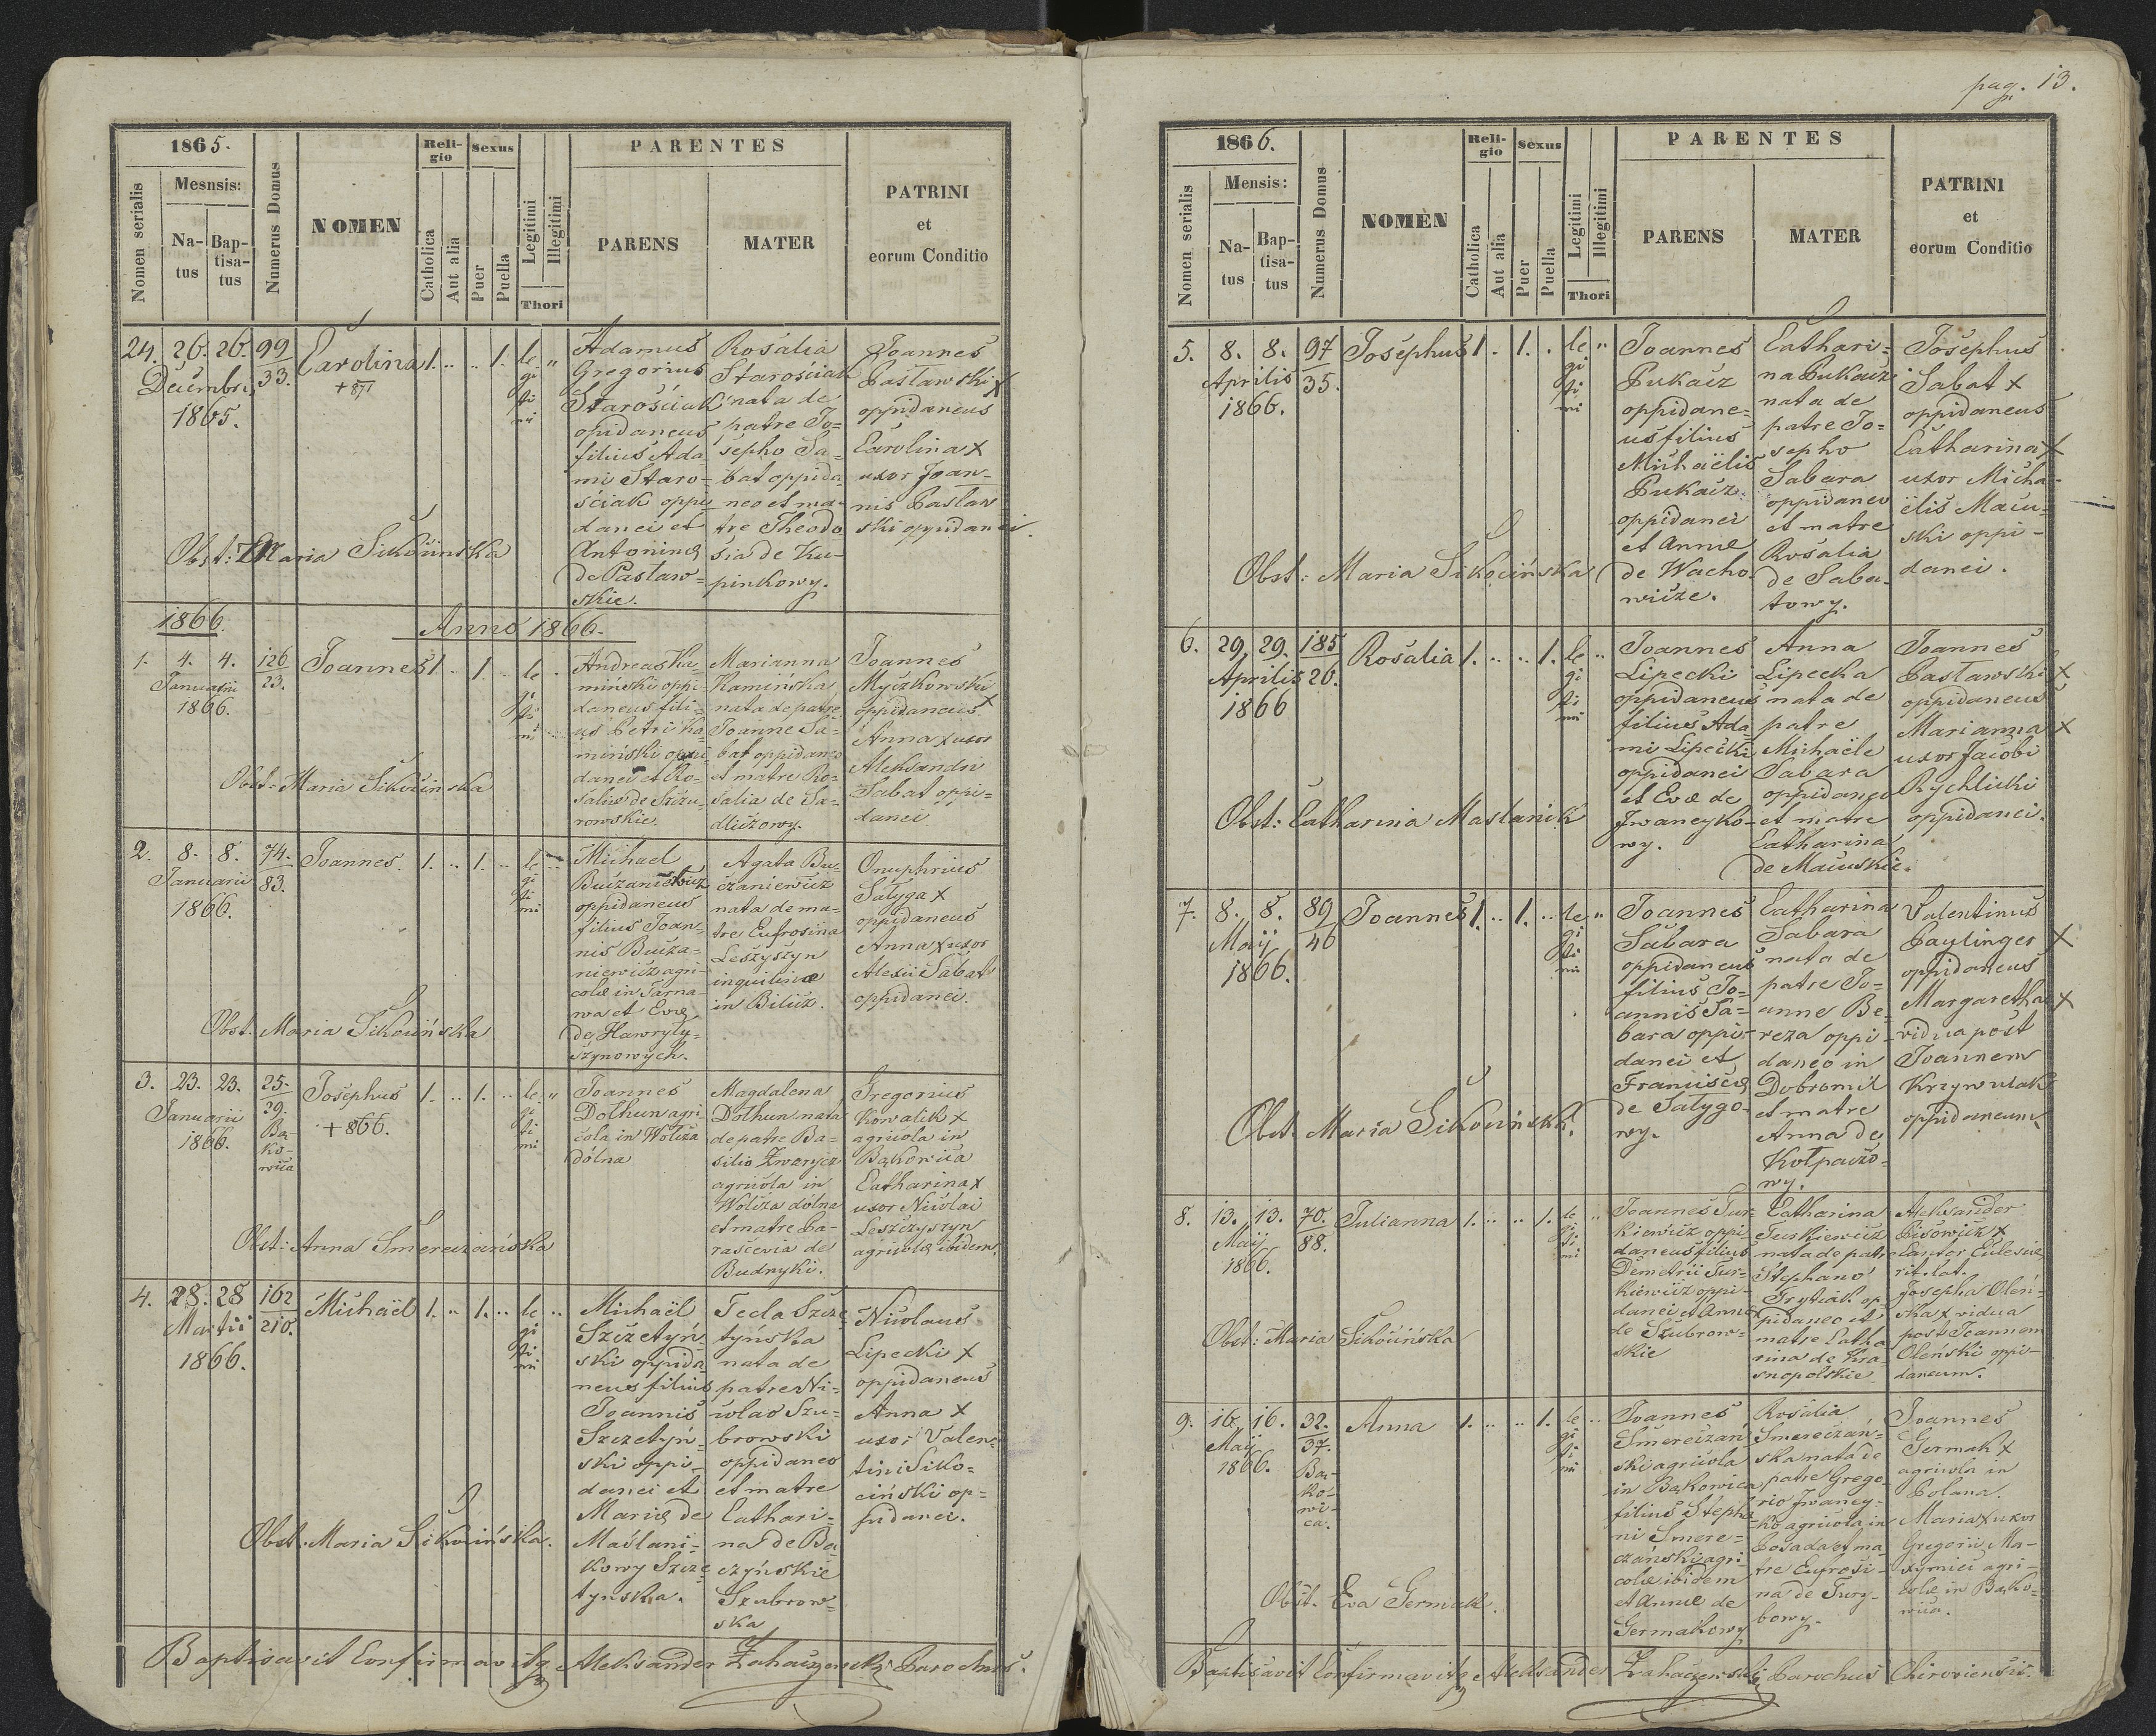 pag. 13.
1865.
Nomen serialis
Mesnsis:
Na-
tus
Bap-
tisa-
tus
Numerus Domus
NOMEN
Reli-
gio
Catholica
Aut alia
Sexus
Puer
Puella
Legitimi
Illegitimi
Thori
PARENTES
PARENS
MATER
PATRINI
et
eorum Conditio
24. 26. 26.
Decembris
1865.
99
33.
Carolina
+ 871
1. .. .. 1.
le
gi
ti
mi
Adamus
Gregorius
Starościak
opidaneus
filius Ada-
mi Staro-
ściak oppi
danei et
Antonina
de Pastaw-
skie.
Rosalia
Starościak
nata de
patre Jo-
sepho Sa-
bat oppida-
neo et ma-
tre Theodo
sia de Ku-
pinkowy.
Joannes
Pastawski x
oppidaneus
Carolina x
uxor Joan-
nis Pastaw
ski oppidanei.
Obst: Maria Sikocińska
1866.
Anno 1866.
1. 4. 4.
Januarii
1866.
126
23.
Joannes
1. 1.
le
gi
ti
mi
Andreas Ka
miński oppi-
daneus fili-
us Petri Ka-
miński oppi
danei et Ro-
salia de Szczu-
rowskie.
Marianna
Kamińska
nata de patre
Joanne Sa-
bat oppidaneo
et matre Ro-
salia de Sa-
dliczowy.
Joannes
Myczkowski
oppidaneus x
Anna x uxor
Aleksandri
Sabat oppi-
danei
Obst: Maria Sikocinska
2. 8. 8.
Januarii
1866.
74.
83.
Joannes.
1. .. 1. ..
le
gi
ti
mi
Michael
Buczaniewicz
oppidaneus
filius Joan-
nis Bucza-
niewicz agri-
colæ in Tarna-
wa et Eva
de Hawryly-
szynowych.
Agata Bu-
czaniewicz
nata de ma-
tre Eufrosina
Leszyszyn
inquilinæ
in Bilicz.
Onuphrius
Sałyga x
oppidaneus
Anna x uxor
Alexii Sabat
oppidanei.
Obst. Maria Sikocińska
3. 23. 23.
Januarii
1866.
25.
29.
Ba-
ko-
wica
Josephus
+ 866.
1. .. 1. ..
le
gi
ti
mi
Joannes
Dołhun agri
cola in Wolcza
dolna
Magdalena
Dołhun nata
de patre Ba-
silio Zwarycz
agricola in
Wolcza dolna
et matre Pa-
rascevia de
Budnyki.
Gregorius
Kowalik x
agricola in
Bąkowica
Catharina x
uxor Nicolai
Leszczyszyn
agricolæ ibidem.
Obst: Anna Smereczańska
4. 28. 28
Martii
1866.
162
210.
Michaël
1. .. 1. ..
le
gi
ti
mi
Michaël
Szczetyń
ski oppida
neus filius
Joannis
Szczetyń-
ski oppi-
danei et
Maria de
Maślani-
kowy Szcze
tynska.
Tecla Szcze
tyńska
nata de
patre Ni-
colao Szu-
browski
oppidaneo
et matre
Cathari-
na de Ba-
czyńskie
Szubrow-
ska
Nicolaus
Lipecki x
oppidaneus
Anna x
uxor Valen-
tini Siko-
ciński op-
pidanei.
Obst: Maria Sikocińska.
Baptisavit Confirmavitq Aleksander Zahaczewski Parochus.
1866.
Nomen serialis
Mensis:
Na-
tus
Bap-
tisa-
tus
Numerus Domus
NOMEN
Reli-
gio
Catholica
Aut alia
Sexus
Puer
Puella
Legitimi
Illegitimi
Thori
PARENTES
PARENS
MATER
PATRINI
et
eorum Conditio
5. 8. 8.
Aprilis
1866.
97
35.
Josephus
1. 1. .
le
gi
ti
mi
Joannes
Pukacz
oppidane-
us filius
Michaëlis
Pukacz
oppidanei
et Annæ
de Wacho-
wicze.
Cathari-
na Pukacz
nata de
patre Jo-
sepho
Sabara
oppidaneo
et matre
Rosalia
de Saba-
towy.
Josephus
Sabat x
oppidaneus
Catharina x
uxor Micha-
ëlis Macu-
ski oppi-
danei.
Obst: Maria Sikocińska
6. 29. 29.
Aprilis
1866
185
20.
Rosalia
1. .. .. 1.
le
gi
ti
mi
Joannes
Lipecki
oppidaneus
filius Ada
mi Lipecki
oppidanei
et Evæ de
Iwaneyko-
wy.
Anna
Lipecka
nata de
patre
Michaële
Sabara
oppidaneo
et matre
Catharina
de Macuskie.
Joannes
Pastawski x
oppidaneus
Marianna x
uxor Jacobi
Rychlicki
oppidanei.
Obst: Catharina Maslanik
7. 8. 8.
Maij
1866.
89
46
Joannes
1. .. 1. ..
le
gi
ti
mi
Joannes
Sabara
oppidaneus
filius Jo-
annis Sa-
bara oppi-
danei et
Francisca
de Sałygo-
wy.
Catharina
Sabara
nata de
patre Jo-
anne Be-
reza oppi-
daneo in
Dobromil
et matre
Anna de
Kołpaczo-
wy.
Valentinus
Paylinger x
oppidaneus
Margaretha x
vidua post
Joannem
Krzywulak
oppidaneum
Obst. Maria Sikocińska.
8. 13. 13.
Maij
1866.
70.
88.
Julianna
1. .. .. 1.
le
gi
ti
mi
Joannes Tur-
kiewicz oppi-
daneus filius
Demetrii Tur-
kiewicz oppi-
danei et Annæ
de Szubrow-
skie
Catharina
Turkiewicz
nata de patre
Stephano
Frytiak op
pidaneo et
matre Catha
rina de Kra-
snopolskie.
Aleksander
Pisowicz x
Cantor Eclesiæ
rit. lat.
Josepha Oleń-
ska x vidua
post Joannem
Oleński oppi-
daneum.
Obst: Maria Sikocińska
9. 16. 16.
Maij
1866.
32.
37.
Ba-
ko-
wi-
ca.
Anna
1. .. .. 1.
le
gi
ti
mi
Joannes
Smereczań
ski agricola
in Bąkowica
filius Stepha
ni Smere-
czański agri-
colæ ibidem
et Annæ de
Germakowy
Rosalia
Smereczań-
ska nata de
patre Grego-
rio Iwaney-
ko agricola in
Posada et ma-
tre Eufrosi-
na de Tury-
bowy.
Joannes
Germak x
agricola in
Polana.
Maria x uxor
Gregorii Ma-
xymicz agri-
colæ in Bąko-
wica.
Obst. Eva Germak.
Baptisavit Confirmavitq Aleksander Zahaczewski Parochus Chiroviensis.